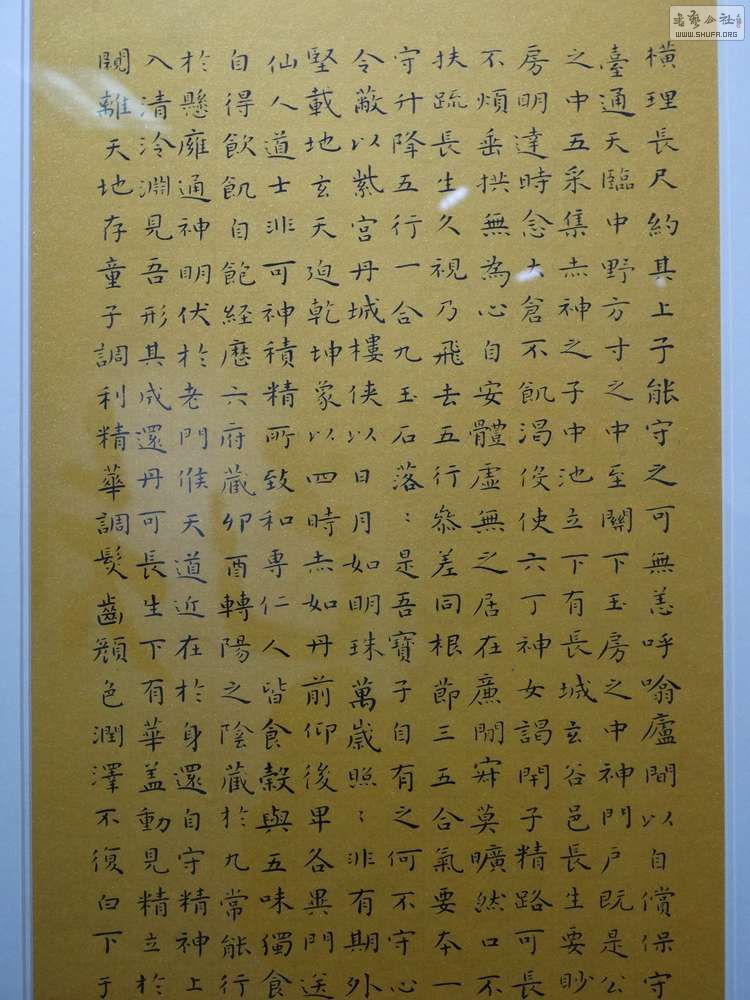 書藝公社
WWW.SHUFA.ORG
橫理長尺約其上子能守之可無恙呼噏廬間以自償保守
臺通天臨中野方寸之中至關下玉房之中神門戶既是公
之中五采集赤神之子中池立下有長城玄谷邑長生要眇
房明達時念大倉不飢渴役使六丁神女謁閉子精路可長
不煩垂拱無為心自安體虛無之居在廉閒寂莫曠然口不
扶疏長生久視乃飛去五行參差同根節三五合氣要本一
守升降五行一合九玉石落〻是吾寶子自有之何不守心
令蔽以紫宮丹城樓俠以日月如明珠萬歲照〻非有期外
堅載地玄天迫乾坤象以四時赤如丹前仰後卑各異門送
仙人道士非可神積精所致和專仁人皆食穀與五味獨食
自得飲飢自飽經歷六府藏卯酉轉陽之陰藏於九常能行
於懸雍通神明伏於老門候天道近在於身還自守精神上
入清泠淵見吾形其成還丹可長生下有華盖動見精立於
闚離天地存童子調利精華調髮齒顏色潤澤不復白下于